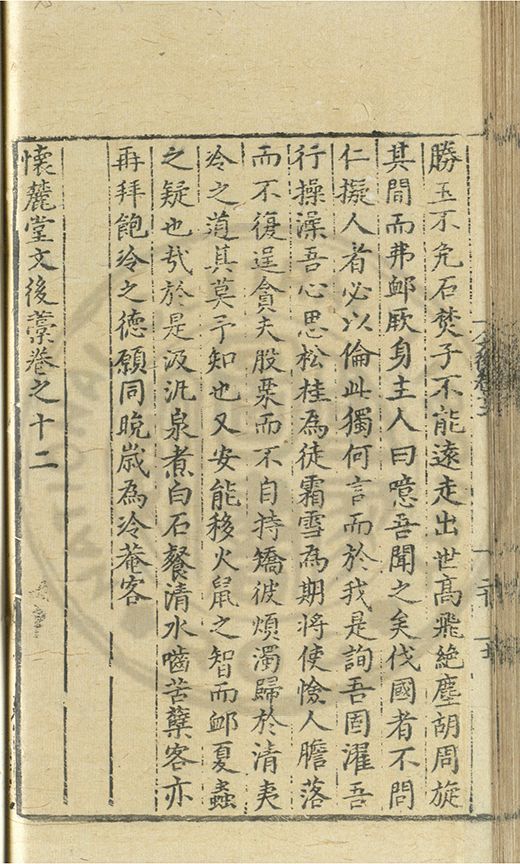 勝玉不免石焚子不能遠走出世高飛絶塵胡周旋
其間而弗䘏厥身主人曰噫吾聞之矣伐國者不問
仁擬人者必以倫此獨何言而於我是詢吾固濯吾
行操澡吾心思松桂為徒霜雪為期將使憸人膽落
而不復逞貪夫股栗而不自持矯彼煩濁歸於清夷
冷之道其莫予知也又安能移火鼠之智而䘏夏蟲
之疑也㢤於是汲氿泉煮白石餐清水嚙苦蘖客亦
再拜飽冷之德願同晩歳為冷菴客
懷麓堂文後藁卷之十二